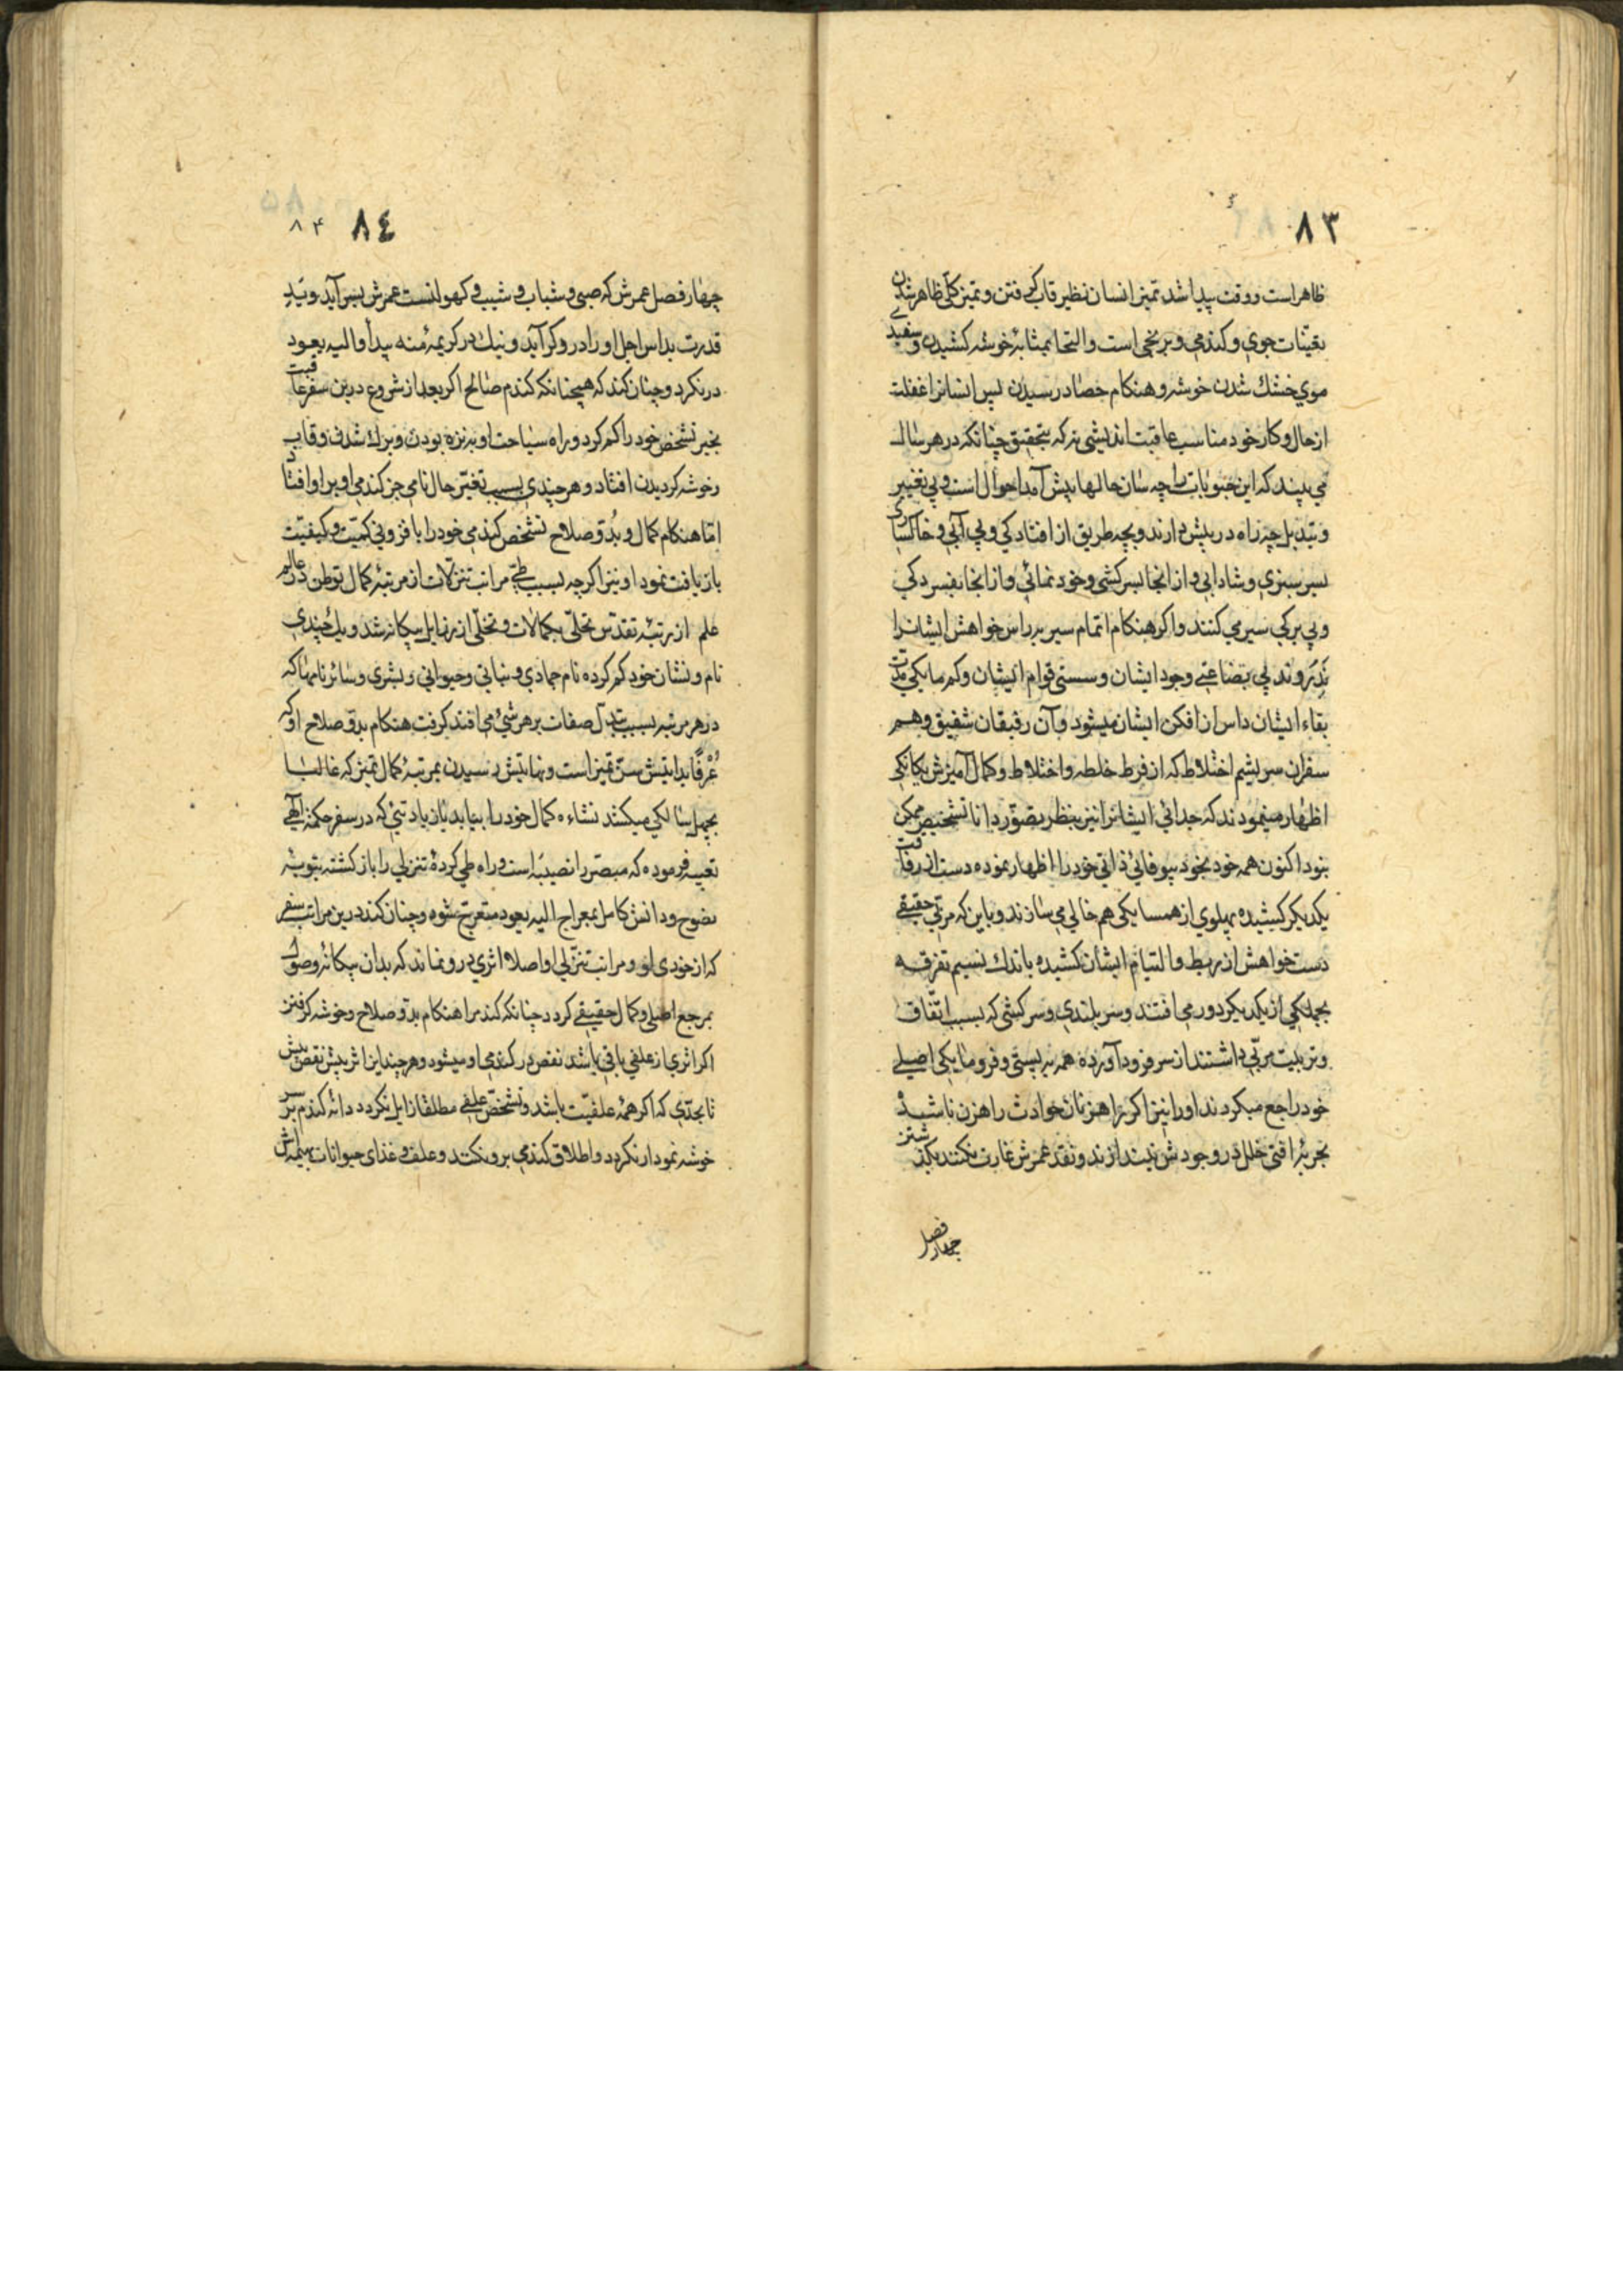 ٨٣
ظاهر است ووقت پیدا شدن تمیز انسان نظیر قاب گرفتن و تمیز کلی ظاهر شدن
تعینات جوی و کندمی و برنجی است و التحا بمثابۀ خوشه کشیدن و سفیدی
موی خشك شدن خوشه و هنکام حصاد رسیدن پس انسانرا غفلت
از حال و کار خود مناسب عاقبت اندیشی نه که بتحقیق چنانکه در هر سال
می بیند که این حبوبات را چه سان حالها پیش آمد احوال است و بی تغییر
و تبدیل چه راه در پیش دارند و بچه طریق از افتادکی و بی آبی و خاکساری
بسر سبزی و شادابی و از انجا بسرکشی و خود نمائی و از انجا بفسردکی
و بی برکی سیر می کنند و اکر هنکام اتمام سیر بر داس خواهش ایشانرا
ندروند بی بضاعتی وجود ایشان و سستی قوام ایشان و کم مایکی مدت
بقاء ایشان داس از افکن ایشان میشود و آن رفیقان شفیق و هم
سفران سریشم اختلاط که از فرط خلطه و اختلاط و کمال آمیزش یکانکی
اظهار مینمودند که جدائی ایشانرا نیز بنظر تصور دانا تشخیص ممکن
نبود اکنون همه خود بخود بیوفائی ذاتی خود را اظهار نموده دست از رفاقت
یکدیکر کشیده پهلوی از همسایکی هم خالی می سازند و باین که مربی حقیقی
دست خواهش از ربط و التیام ایشان کشیده باندك نسیم تفرقه
بجملکی از یکدیکر دور می افتند و سر بلندی و سرکشی که بسبب اتفاق
و تربیت مربی داشتند از سر فرود آورده همه به پستی و فرومایکی اصلی
خود راجع میکردند او را نیز اکر راهزنان حوادث راهزن نباشند
بجربۀ افتی خلل در وجودش نیندازند و نقد عمرش غارت نکنند بکذشتن
چهار فصل
٨٤
٨٤
چهار فصل عمرش که صبی و شباب و شیب و کهولتست عمرش بسر آید و بید
قدرت بداس اجل او را درو کر آید و نیك در کریمۀ منه بدأ و الیه یعود
در نکرد و چنان کند که همچنانکه کندم صالح اکر بعد از شروع درین سفر عاقبت
بخیر تشخص خود را کم کرد و راه سیاحت او بریزه بودن و بزرك شدن و قاب
و خوشه کردیدن افتاد و هر چندی بسبب تغیر حال نامی جز کندمی او بر او افتاد
اما هنکام کمال و بدو صلاح تشخص کندمی خود را با فزونی کمیت و کیفیت
باز یافت نمود او نیز اکر چه بسبب طی مراتب تنزلات از مرتبۀ کمال توطن در عالم
علم از رتبۀ تقدس تحلی بکمالات و تخلی از رذایل بیکانه شد و یك چندی
نام و نشان خود کم کرده نام جمادی و نباتی و حیوانی و بشری و سائر نامها که
در هر مرتبه بسبب تبدل صفات بر هر شیء می افتد کرفت هنکام بدو صلاح او که
عرفا بدایتش سن تمیز است و نهایتش رسیدن بمرتبۀ کمال تمیز که غالبا
بچهل سالکی میکشد نشاء ه کمال خود را بیابد بآن زیادتی که در سفر حکمة الهی
تعبیه فرموده که مبصر را نصیبه است و راه طی کردۀ تنزلی را بازکشته بتوبۀ
نصوح و دانش کامل بمعراج الیه یعود متعرج شود و چنان کند درین مراتب سفر
که از خودی او و مراتب تنزلی او اصلا اثری درو نماند که بدان بیکانۀ وصول
بمرجع اصلی و کمال حقیقی کردد چنانکه کندم را هنکام بدو صلاح و خوشه کرفتن
اکر اثری از علفی باقی باشد نقص در کندمی او میشود و هر چند این اثر بیش نقص بیش
تا بحدی که اکر همه علفیت باشد و تشخص علفی مطلقا زایل نکردد دانۀ کندم بر سر
خوشه نمودار نکردد و اطلاق کندمی برو نکنند و علف و غذای حیوانات بهیمه اش